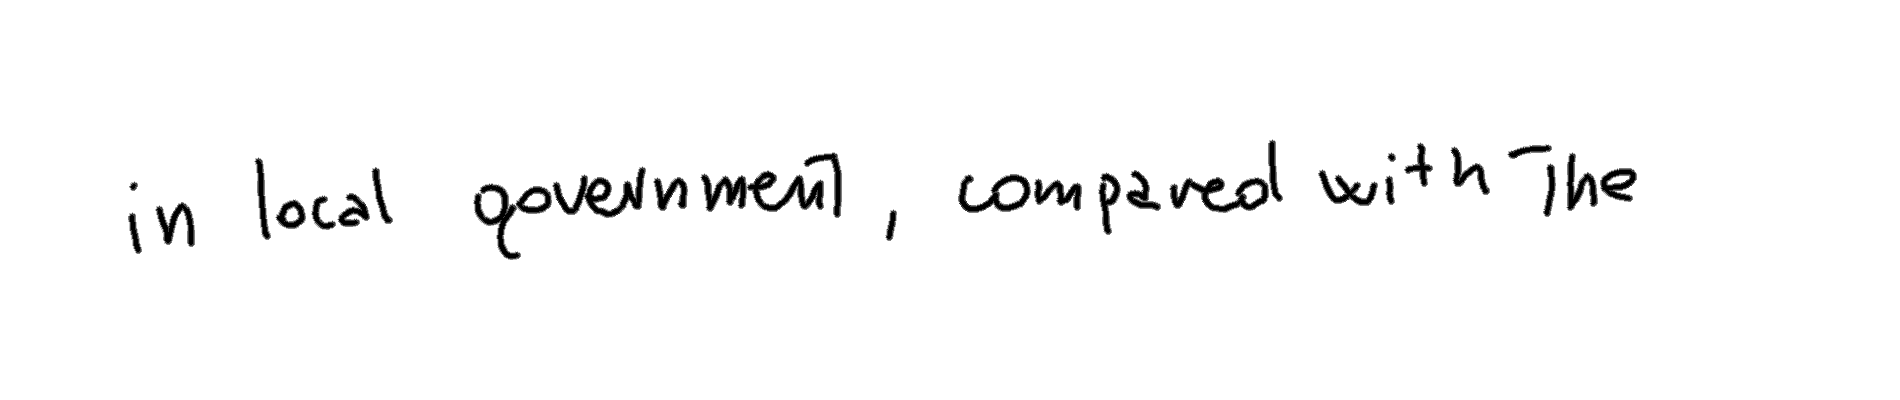 in local government, compared with the